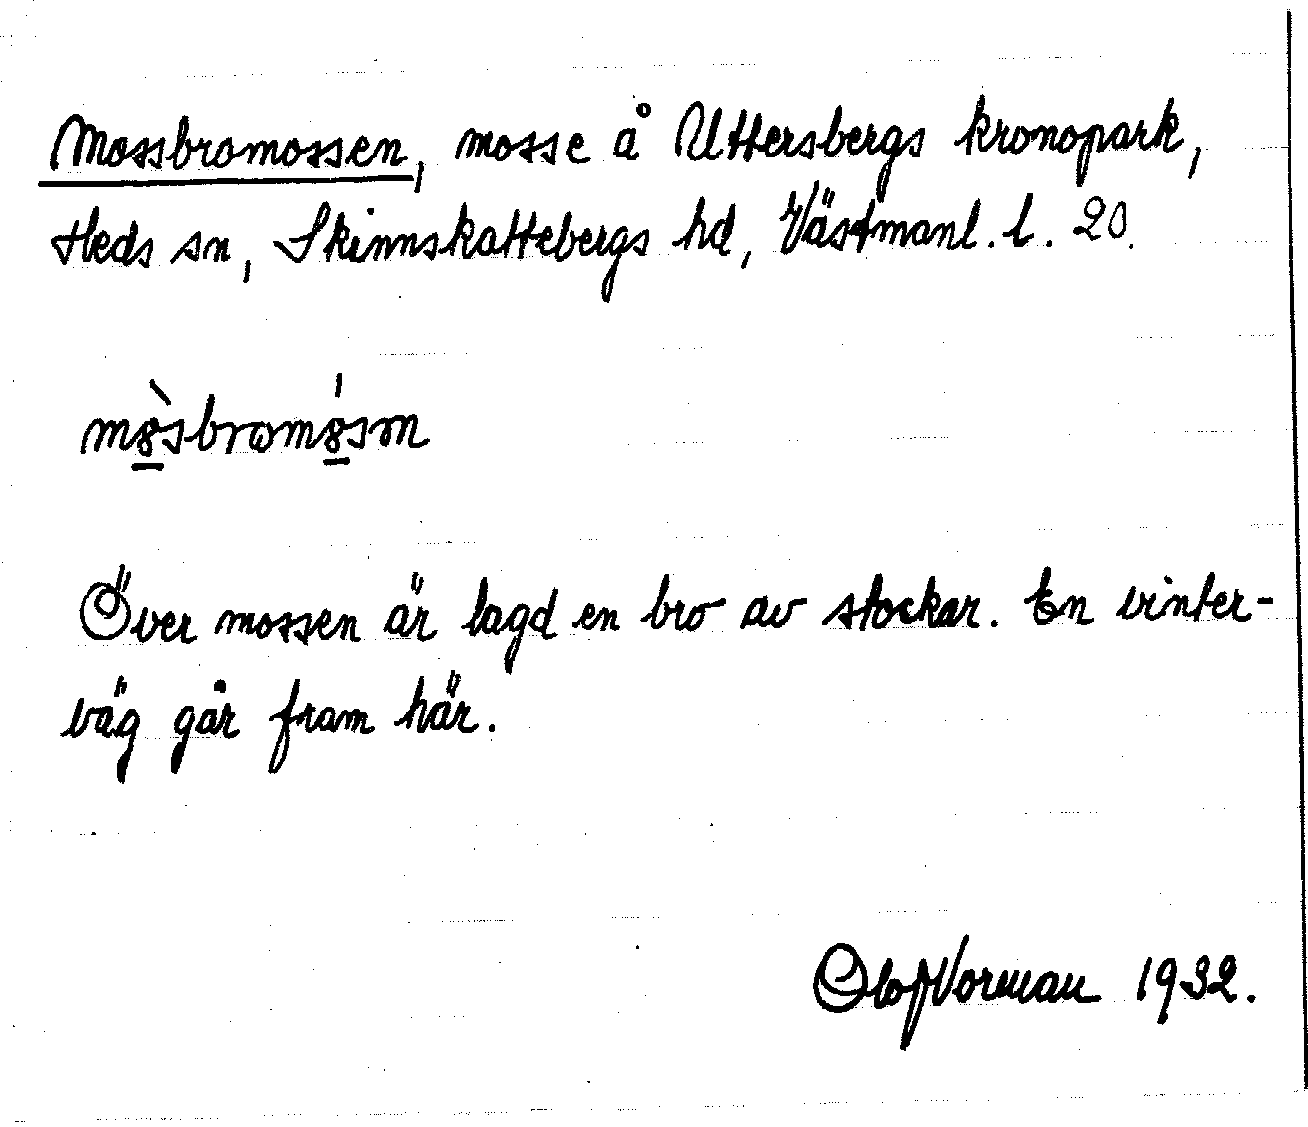 Mossbromossen, mosse å Uttersbergs kronopark,
Heds sn, Skinnskattebergs hd, Västmanl. l. 20.
mòsbromósən
Över mossen är lagd en bro av stockar. En vinter-
väg går fram här.
Olof Norman 1932.